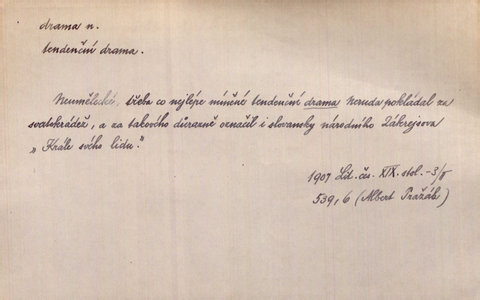 drama n.
tendenční drama.
Neumělecké, třeba co nejlépe míněné tendenční drama Neruda pokládal za
svatokrádež, a za takového důrazně označil i slovansky národního Zákrejsova
„Krále svého lidu."
1907 Lit. čes. XIX. stol. - 3/II
539, 6 (Albert Pražák)